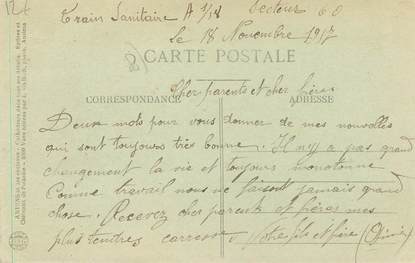 126
Train Sanitaire A 1/18 Secteur 60
Le 18 Novembre 1917
CARTE POSTALE
CORRESPONDANCE ADRESSE
Cher parents et cher frères
Deux mots pour vous donner de mes nouvelles
qui sont toujours très bonne. Il n'y a pas grand
changement la vie et toujours monotone
Comme travail nous ne faisont jamais grand
chose. Recevez cher parents et frères mes
plus tendres carresse. Votre fils et frère